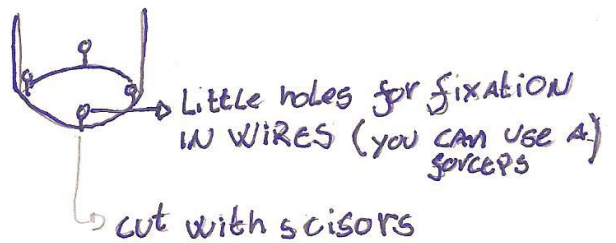 Little holes for fixation
in wires (you can use a)
forceps
cut with scisors